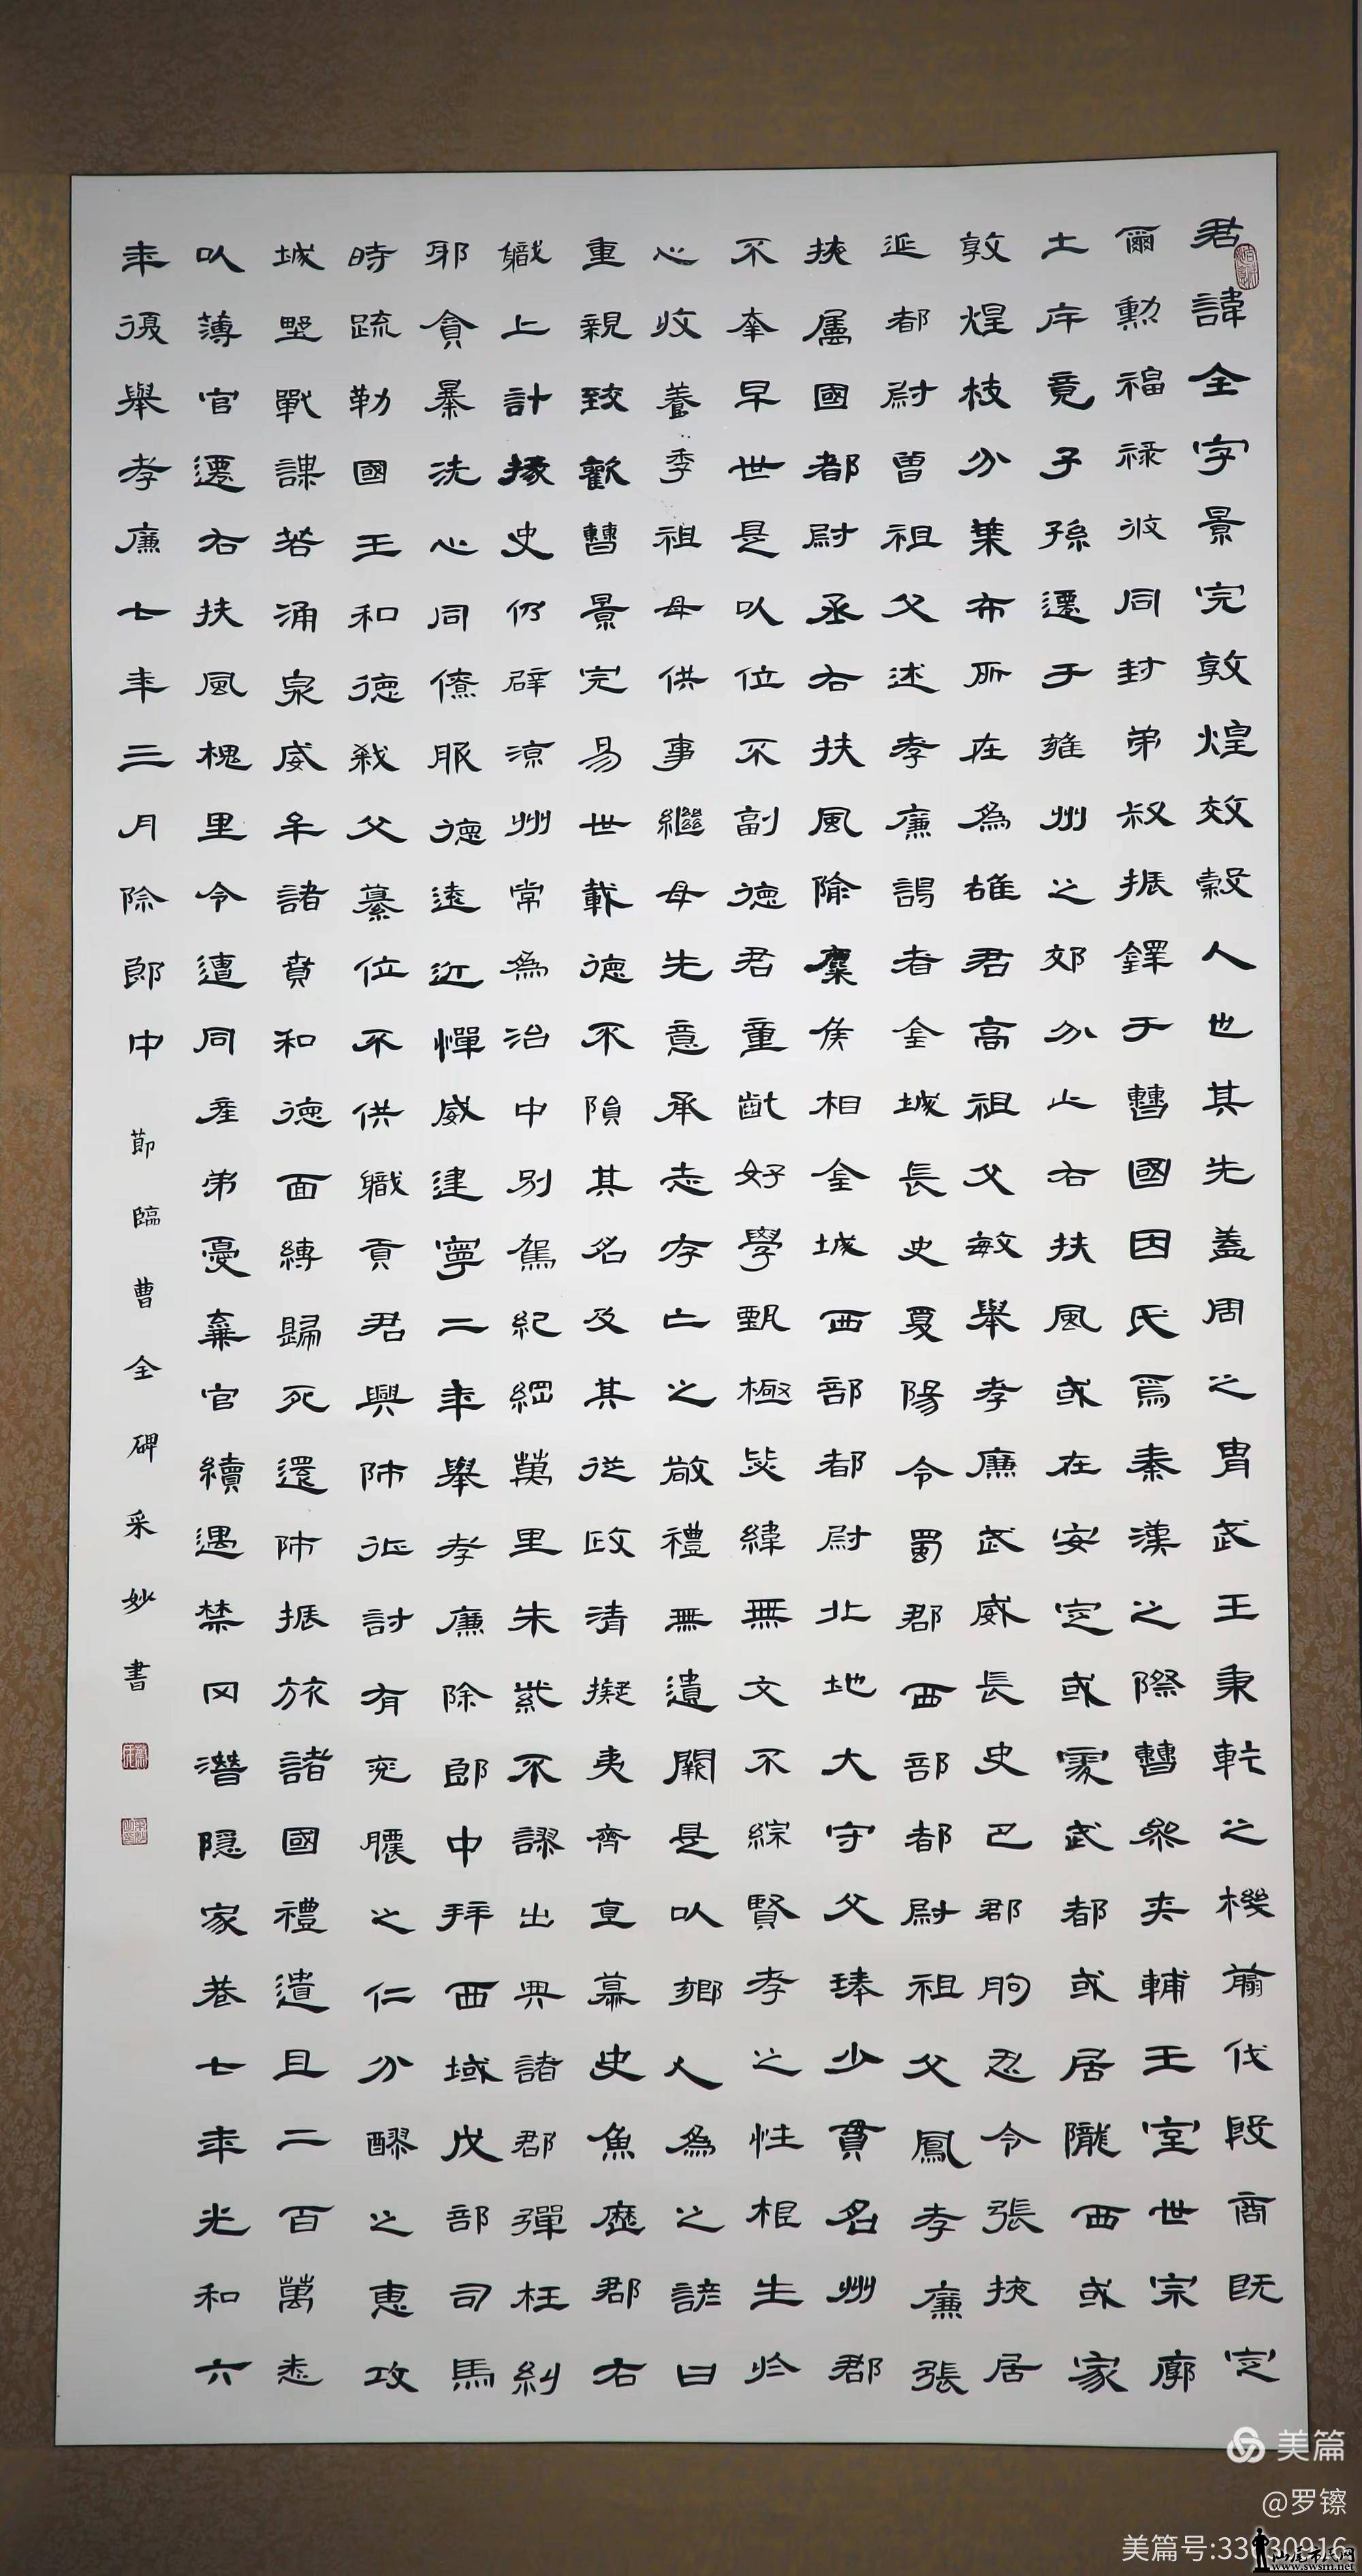 君諱全字景完敦煌效穀人也其先蓋周之胄武王秉乾之機翦伐殷商既定
爾勳福祿攸同封弟叔振鐸于曹國因氏焉秦漢之際曹參夾輔王室世宗廓
土斥竟子孫遷于雍州之郊分止右扶風或在安定或處武都或居隴西或家
敦煌枝分葉布所在為雄君高祖父敏舉孝廉武威長史巴郡朐忍令張掖居
延都尉曾祖父述孝廉謁者金城長史夏陽令蜀郡西部都尉祖父鳳孝廉張
掖屬國都尉丞右扶風隃麋侯相金城西部都尉北地大守父琫少貫名州郡
不幸早世是以位不副德君童齔好學甄極毖緯無文不綜賢孝之性根生於
心收養季祖母供事繼母先意承志存亡之敬禮無遺闕是以鄉人為之諺曰
重親致歡曹景完易世載德不隕其名及其從政清擬夷齊直慕史魚歷郡右
職上計掾史仍辟涼州常為治中別駕紀綱萬里朱紫不謬出典諸郡彈枉糾
邪貪暴洗心同僚服德遠近憚威建寧二年舉孝廉除郎中拜西域戊部司馬
時疏勒國王和德弒父篡位不供職貢君興師征討有兗膿之仁分醪之惠攻
城野戰謀若涌泉威牟諸賁和德面縛歸死還師振旅諸國禮遺且二百萬悉
以薄官遷右扶風槐里令遭同產弟憂棄官續遇禁冈潛隱家巷七年光和六
年復舉孝廉七年三月除郎中
節臨曹全碑采妙書
美篇
@罗镲
美篇号:33
www.swsm.net